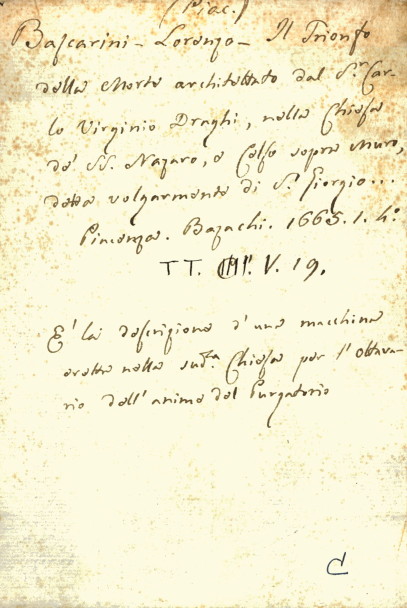 (Piac.)
Bascarini - Lorenzo - Il Trionfo
della Morte architettato dal S.r Car-
lo Virginio Draghi, nella Chiesa
de' SS. Nazaro, e Celso sopra Muro,
detta volgarmente di S. Giorgio...
Piacenza. Bazachi. 1665. 1. 4.o
TT. V. 19.
E' la descrizione d' una macchina
eretta nella sud.ta Chiesa per l' Ottava-
rio dell' anime del Purgatorio
C